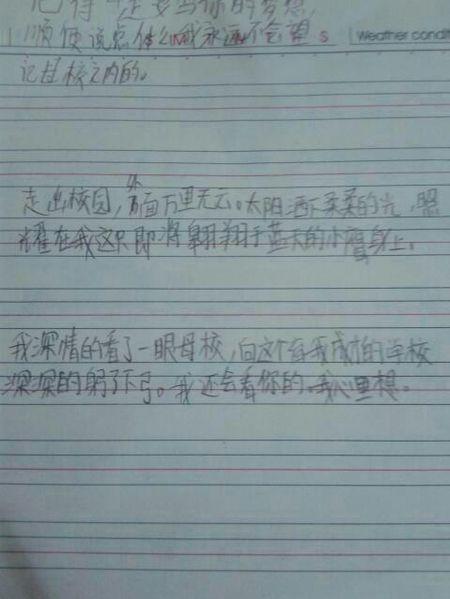 记得一定要当你的梦想,
顺便说总体Z,我永远不会望 s Weather condi
记赶核之内的。
走出校园,外面万里无云。太阳洒下柔柔的光,照
耀在我这只即将翱翔于蓝天的小鹰身上。
我深情的看了一眼母校,向这个身我成柏的学校
深深的躬了下弓。我还会看你的。我心里想。